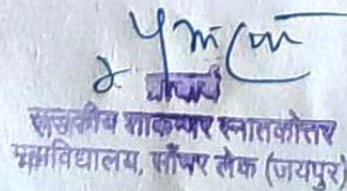 प्राचार्य
राजकीय शाकम्भर स्नातकोत्तर
महाविद्यालय, साँभर लेक (जयपुर)